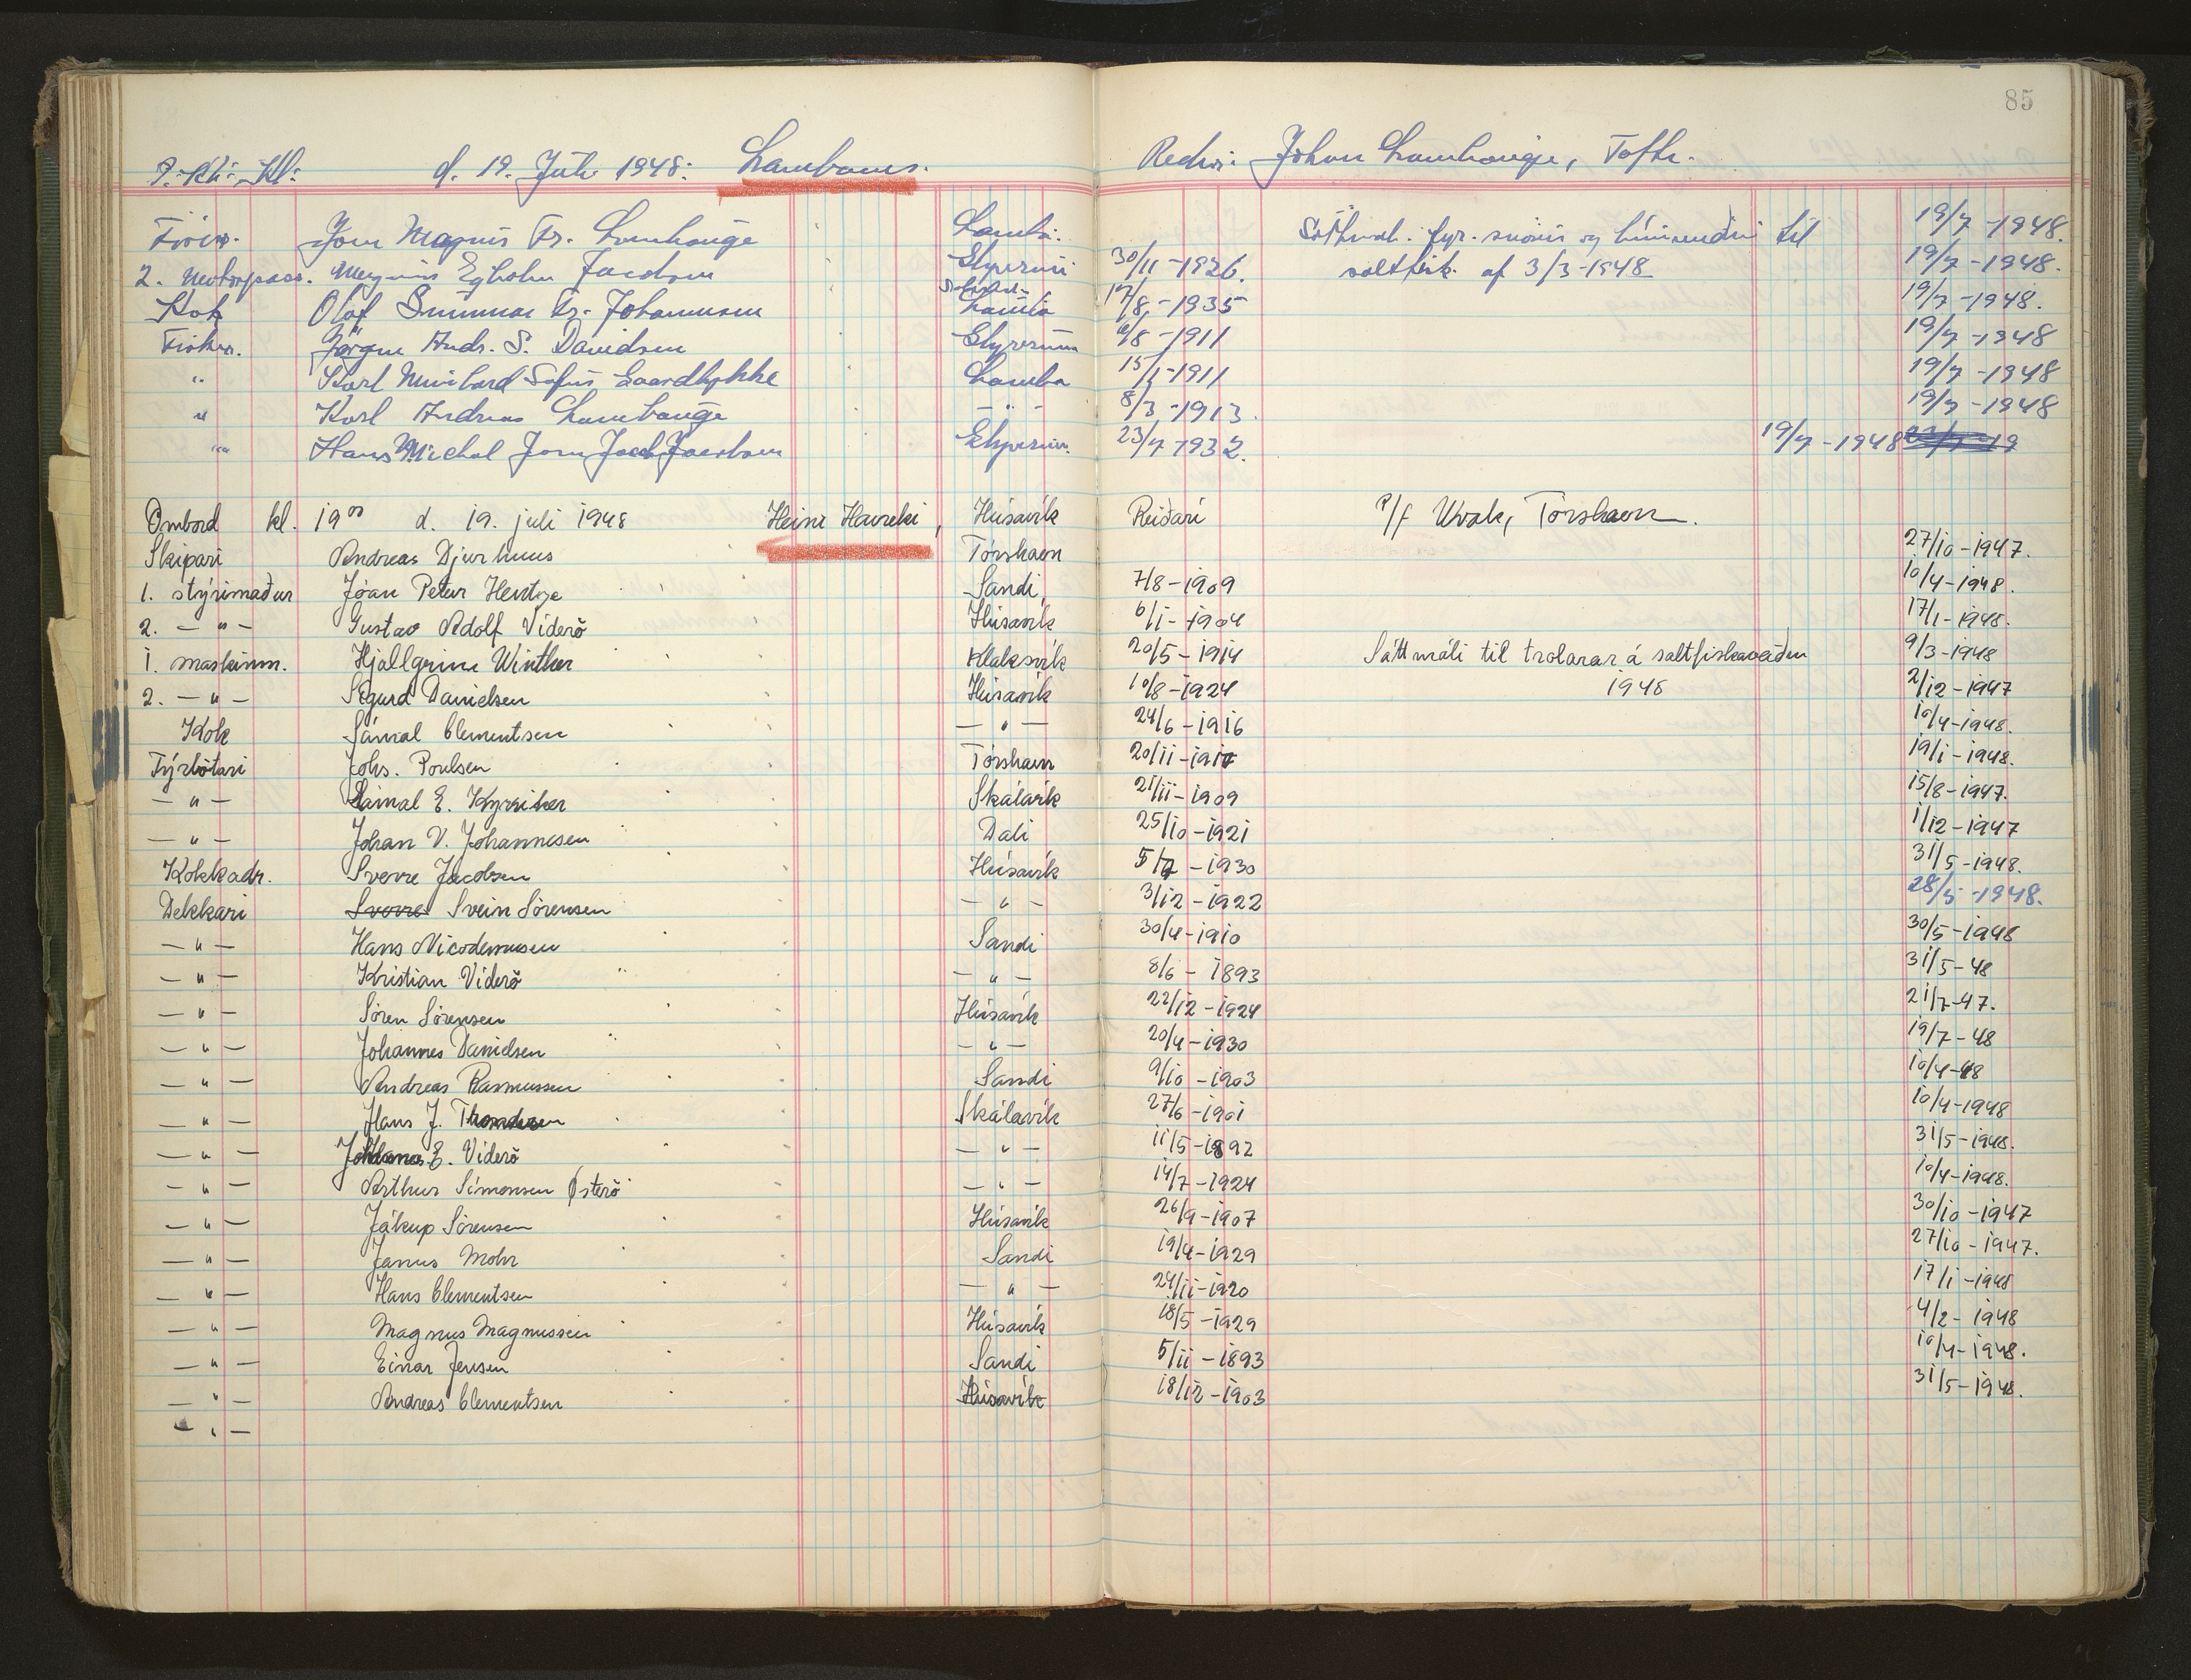 85
d. 19. Juli 1948: Lambanes. Redri: Johan Lamhauge, Toftr.
Jom Magnus Fr. Lamhauge Lamba. til 19/7-1948.
2. Motorpass. Magnus Egholm Jacobsen Glyverum 30/11-1926. saltfisk af 3/3-1948 19/7-1948.
Kok Olaf Gunnar Fr. Johannesen Lamba 17/8-1935 19/7-1948.
Fisker. Jørgen Andr. S. Davidsen Glyvrum 6/8-1911 19/7-1948
" Karl Sofus Gaardlykke Lamba 15/1-1911 19/7-1948
" Karl Andreas Lamhauge -"- 8/3-1913. 19/7-1948
" Hans Michal Jacobsen Glyvrum. 23/7-1932. 19/7-1948
Ombord kl. 19⁰⁰ d. 19. juli 1948 Heini Havreki, Húsavík Reiðari P/f Uvak, Tórshavn.
Skipari Andreas Djurhuus Tórshavn 27/10-1947.
1. stýrimaður Jóan Petur Hentze Sandi, 7/8-1909 10/4-1948.
2. -"- Gustav Adolf Viderö Húsavík 6/1-1904 17/1-1948.
1. maskinm. Hjallgrim Winther Klaksvík 20/5-1914 Sáttmáli til trolarar á saltfiskaveiðu 9/3-1948
2. -"- Sigurd Danielsen Húsavík 10/8-1924 1948 2/12-1947
Kok Sámal Clementsen -"- 24/6-1916 10/4-1948.
Fýrbötari Johs. Poulsen Tórshavn 20/11-1917 19/1-1948.
-"- Sámal E. Skálavík 21/11-1909 15/8-1947.
-"- Johan V. Johannesen Dali 25/10-1921 1/12-1947
Kokkadr. Sverre Jacobsen Húsavík 5/7-1930 31/5-1948.
Dekkari Sverre Svein Sörensen -"- 3/12-1922 28/5-1948.
-"- Hans Nicodemusen Sandi 30/4-1910 30/5-1948
-"- Kristian Viderö -"- 8/6-1893 31/5-48
-"- Sören Sörensen Húsavík 22/12-1924 21/7-47.
-"- Johannes Danielsen -"- 20/4-1930 19/7-48
-"- Andreas Rasmussen Sandi 9/10-1903 10/4-48
-"- Hans J. Thomdsen Skálavík 27/6-1901 10/4-1948
-"- E. Viderö -"- 11/5-1892 31/5-1948.
-"- Arthur Simonsen Østerö -"- 14/7-1924 10/4-1948.
-"- Jákup Sörensen Húsavík 26/9-1907 30/10-1947
-"- Janus Mohr Sandi 19/4-1929 27/10-1947.
-"- Hans Clementsen -"- 24/11-1920 17/1-1948
-"- Magnus Magnussen Húsavík 18/5-1929 4/2-1948
-"- Einar Jensen Sandi 5/11-1893 10/4-1948.
-"- Andreas Clementsen Húsavík 18/12-1903 31/5-1948.
-"-